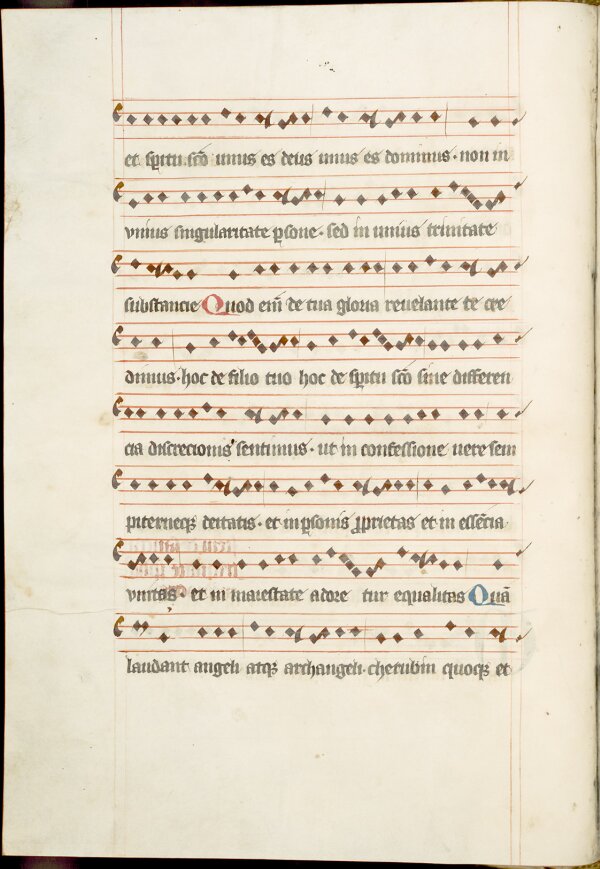 et spitu sco unus es deus unus es dominus· non in
unius singularitate psone· sed in unius trinitate
substancie Quod eim de tua gloria reuelante te cre
dimus· hoc de filio tuo hoc de spitu sco sine differen
cia discrecionis sentimus· ut in confessione uere sem
piterneqz deitatis· et in psonis pprietas et in essẽcia
unitas· et in maiestate adore tur equalitas Quã
laudant angeli atqz archangeli· cherubin quoqz et